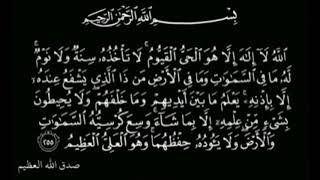 بِسْمِ اللَّهِ الرَّحْمَٰنِ الرَّحِيمِ
اللَّهُ لَا إِلَٰهَ إِلَّا هُوَ الْحَيُّ الْقَيُّومُ ۚ لَا تَأْخُذُهُ سِنَةٌ وَلَا نَوْمٌ ۚ
لَهُ مَا فِي السَّمَاوَاتِ وَمَا فِي الْأَرْضِ ۗ مَنْ ذَا الَّذِي يَشْفَعُ عِنْدَهُ
إِلَّا بِإِذْنِهِ ۚ يَعْلَمُ مَا بَيْنَ أَيْدِيهِمْ وَمَا خَلْفَهُمْ ۖ وَلَا يُحِيطُونَ
بِشَيْءٍ مِنْ عِلْمِهِ إِلَّا بِمَا شَاءَ ۚ وَسِعَ كُرْسِيُّهُ السَّمَاوَاتِ
وَالْأَرْضَ ۖ وَلَا يَئُودُهُ حِفْظُهُمَا ۚ وَهُوَ الْعَلِيُّ الْعَظِيمُ ٢٥٥
صدق الله العظيم